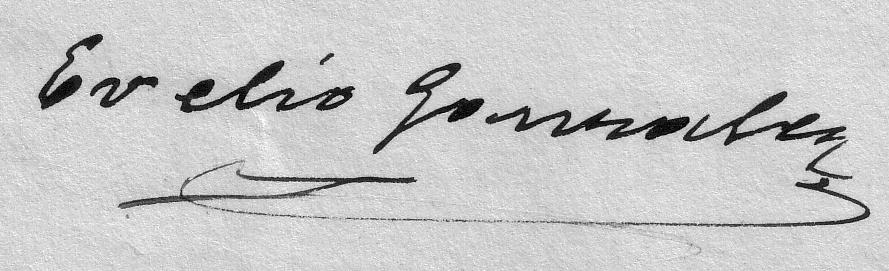 Evelio Gonzalez